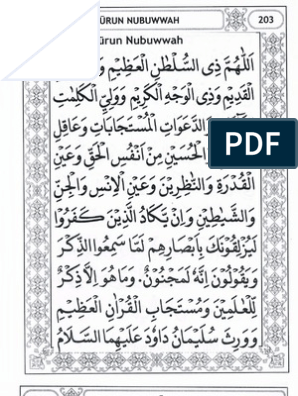 ÛRUN NUBUWWAH
203
ûrun Nubuwwah
اَللّٰهُمَّ ذِى السُّلْطٰنِ الْعَظِيْمِ
الْقَدِيْمِ وَذِى الْوَجْهِ الْكَرِيْمِ وَوَلِيِّ الْكَلِمٰتِ
وَالدَّعَوَاتِ الْمُسْتَجَابَاتِ وَعَاقِلِ
وَالْحُسَيْنِ مِنْ اَنْفُسِ الْحَقِّ وَعَيْنِ
PDF
الْقُدْرَةِ وَالنَّاظِرِيْنَ وَعَيْنِ الْاِنْسِ وَالْجِنِّ
وَالشَّيَاطِيْنِ وَاِنْ يَّكَادُ الَّذِيْنَ كَفَرُوْا
لَيُزْلِقُوْنَكَ بِاَبْصَارِهِمْ لَمَّا سَمِعُوا الذِّكْرَ
وَيَقُوْلُوْنَ اِنَّهُ لَمَجْنُوْنٌ، وَمَا هُوَ اِلَّا ذِكْرٌ
لِّلْعٰلَمِيْنَ وَمُسْتَجَابِ الْقُرْاٰنِ الْعَظِيْمِ
وَوَرِثَ سُلَيْمَانُ دَاوُدَ عَلَيْهِمَا السَّلَامُ